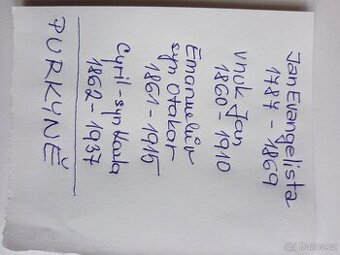 Jan Evangelista
1787 - 1869
vnuk Jan
1860 - 1910
Emanuelův
syn Otakar
1861 - 1915
Cyril - syn Karla
1862 - 1937
PURKYNĚ
Bazos.cz